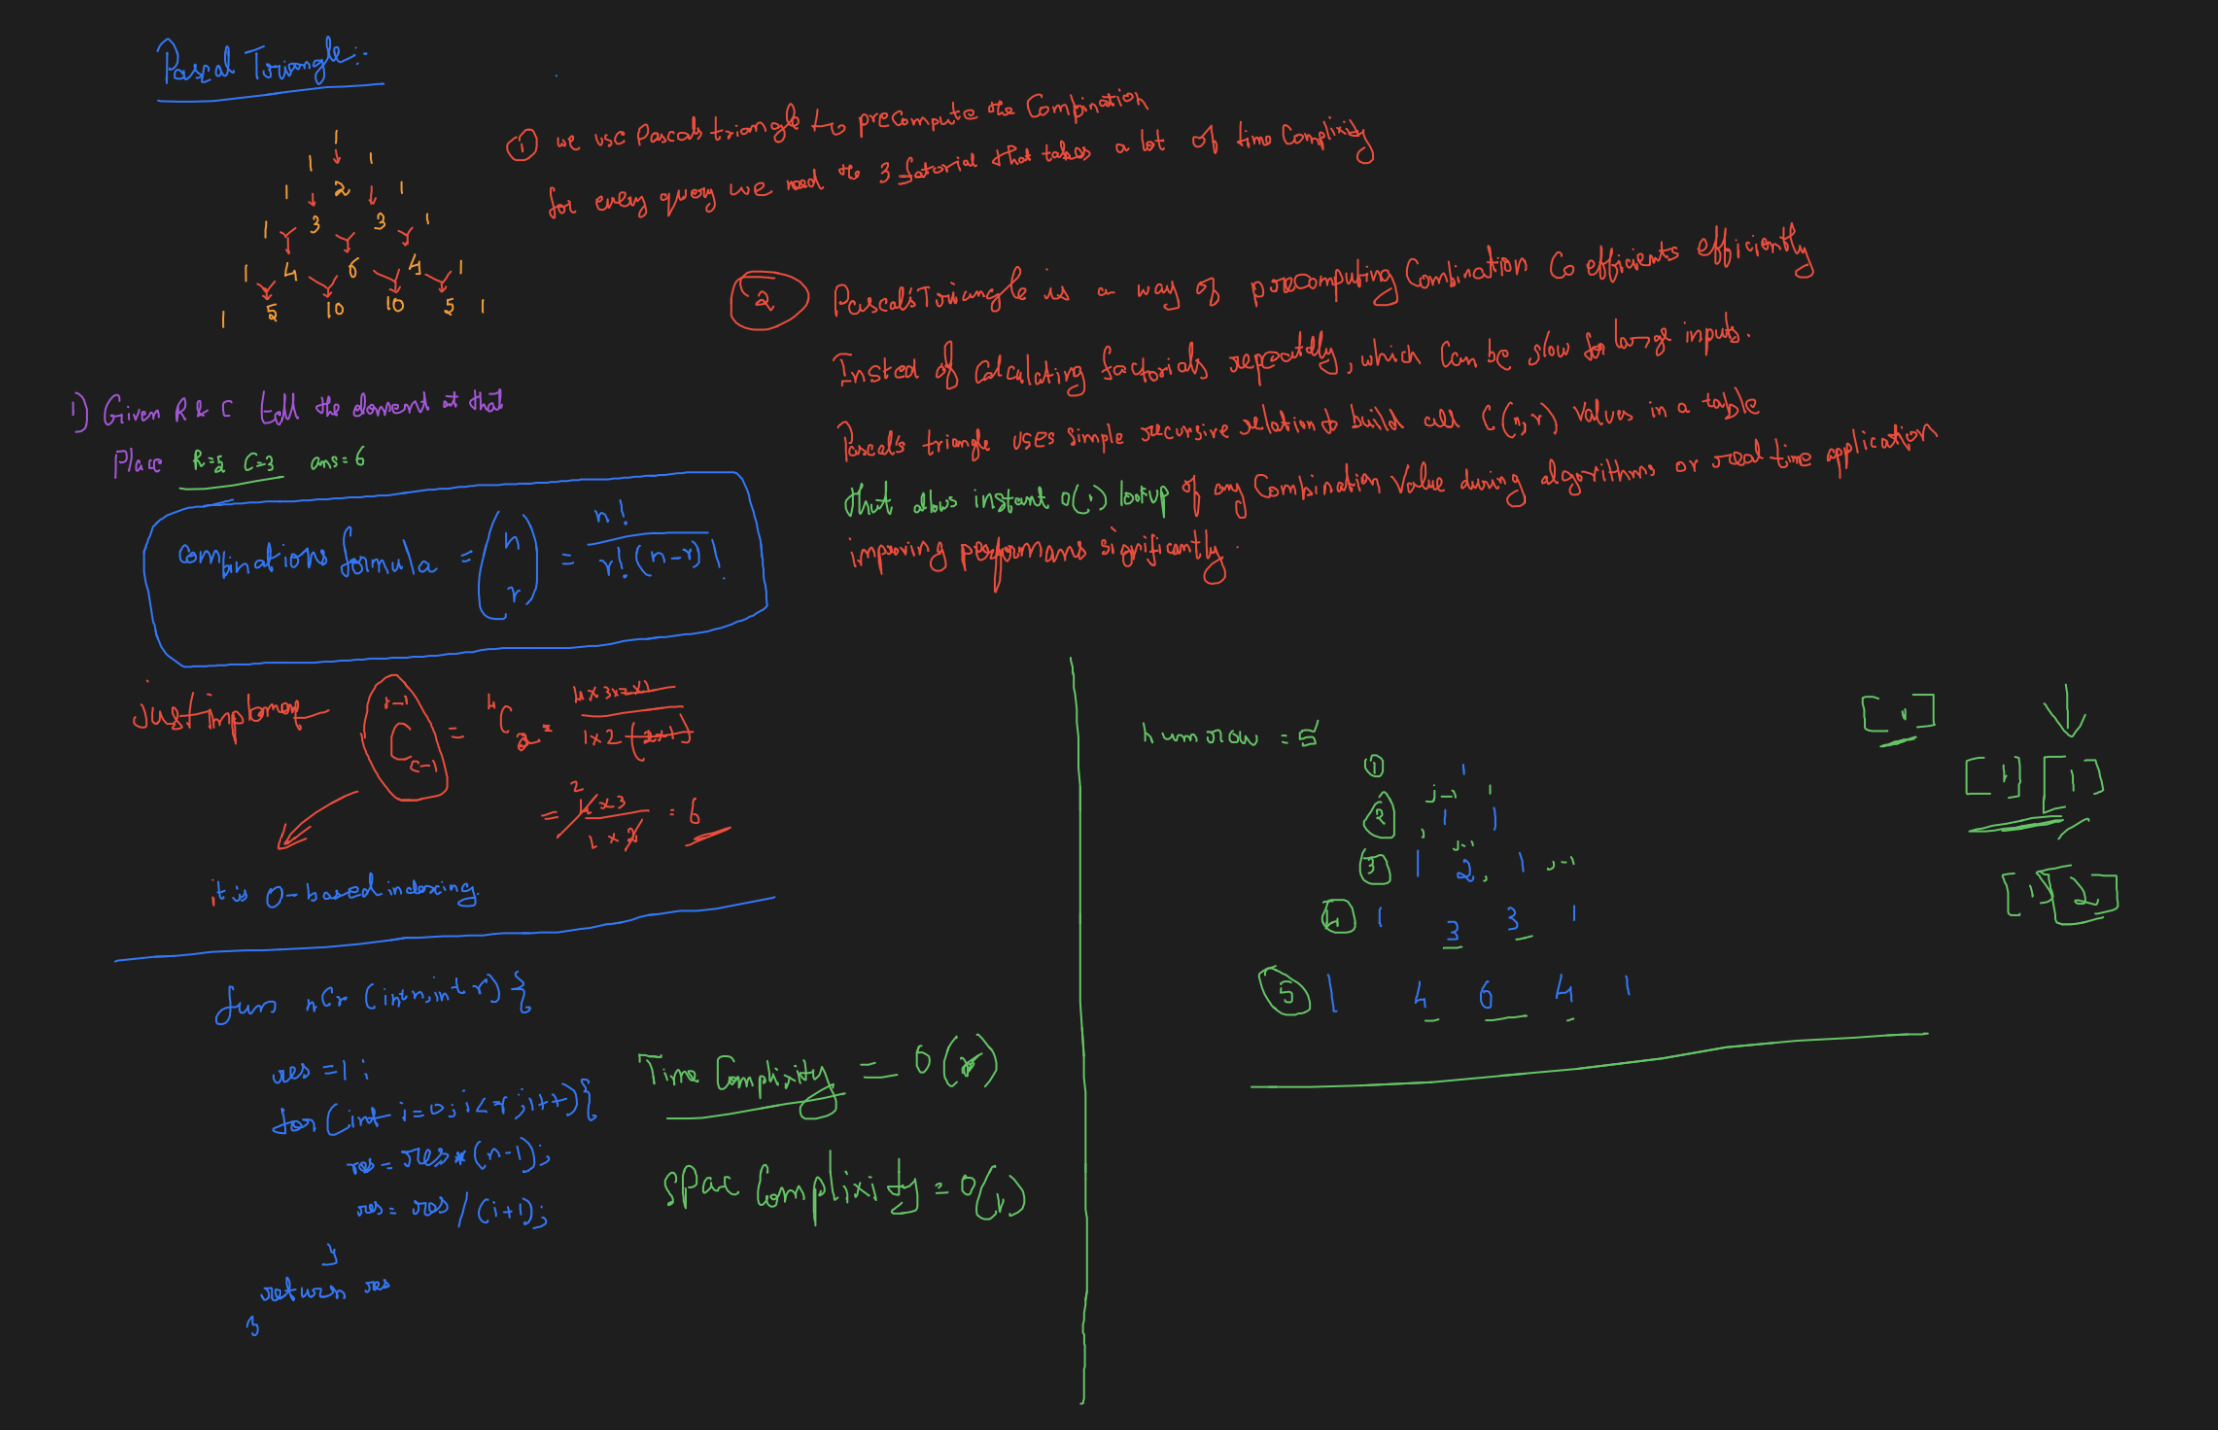 Pascal Triangle:-
1
1 1
1 2 1
1 3 3 1
1 4 6 4 1
1 5 10 10 5 1
① we use Pascals triangle to precompute the Combination
for every query we need the 3 fatorial that takes a lot of time Complixity
② Pascal's Triangle is a way of precomputing Combination Co efficients efficiently
Insted of Calculating factorials repeatdly, which Can be slow for large inputs.
Pascal's triangle uses simple recursive relation to build all C(n,r) values in a table
that allows instant O(1) lookup of any Combination Value during algorithms or real time application
improving performans significantly.
1) Given R & C tell the element at that
Place R=5 C=3 ans=6
Combinations formula = (n r) = n! / r!(n-r)!
just impl
r-1 C c-1 = 4C2 = 4x3x2x1 / 1x2(2x1)
= 4x3 / 1x2 = 6
2
it is 0-based indexing.
func nCr (int n, int r) {
res = 1;
for (int i=0; i<r; i++) {
res = res * (n-1);
res = res / (i+1);
}
return res
}
Time Complixity = O(r)
Spac Complixity = O(1)
numrow = 5
① 1
j-1
② 1 1
j-1
③ 1 2 1 j-1
④ 1 3 3 1
⑤ 1 4 6 4 1
[1]
[1] [1]
[1 2]